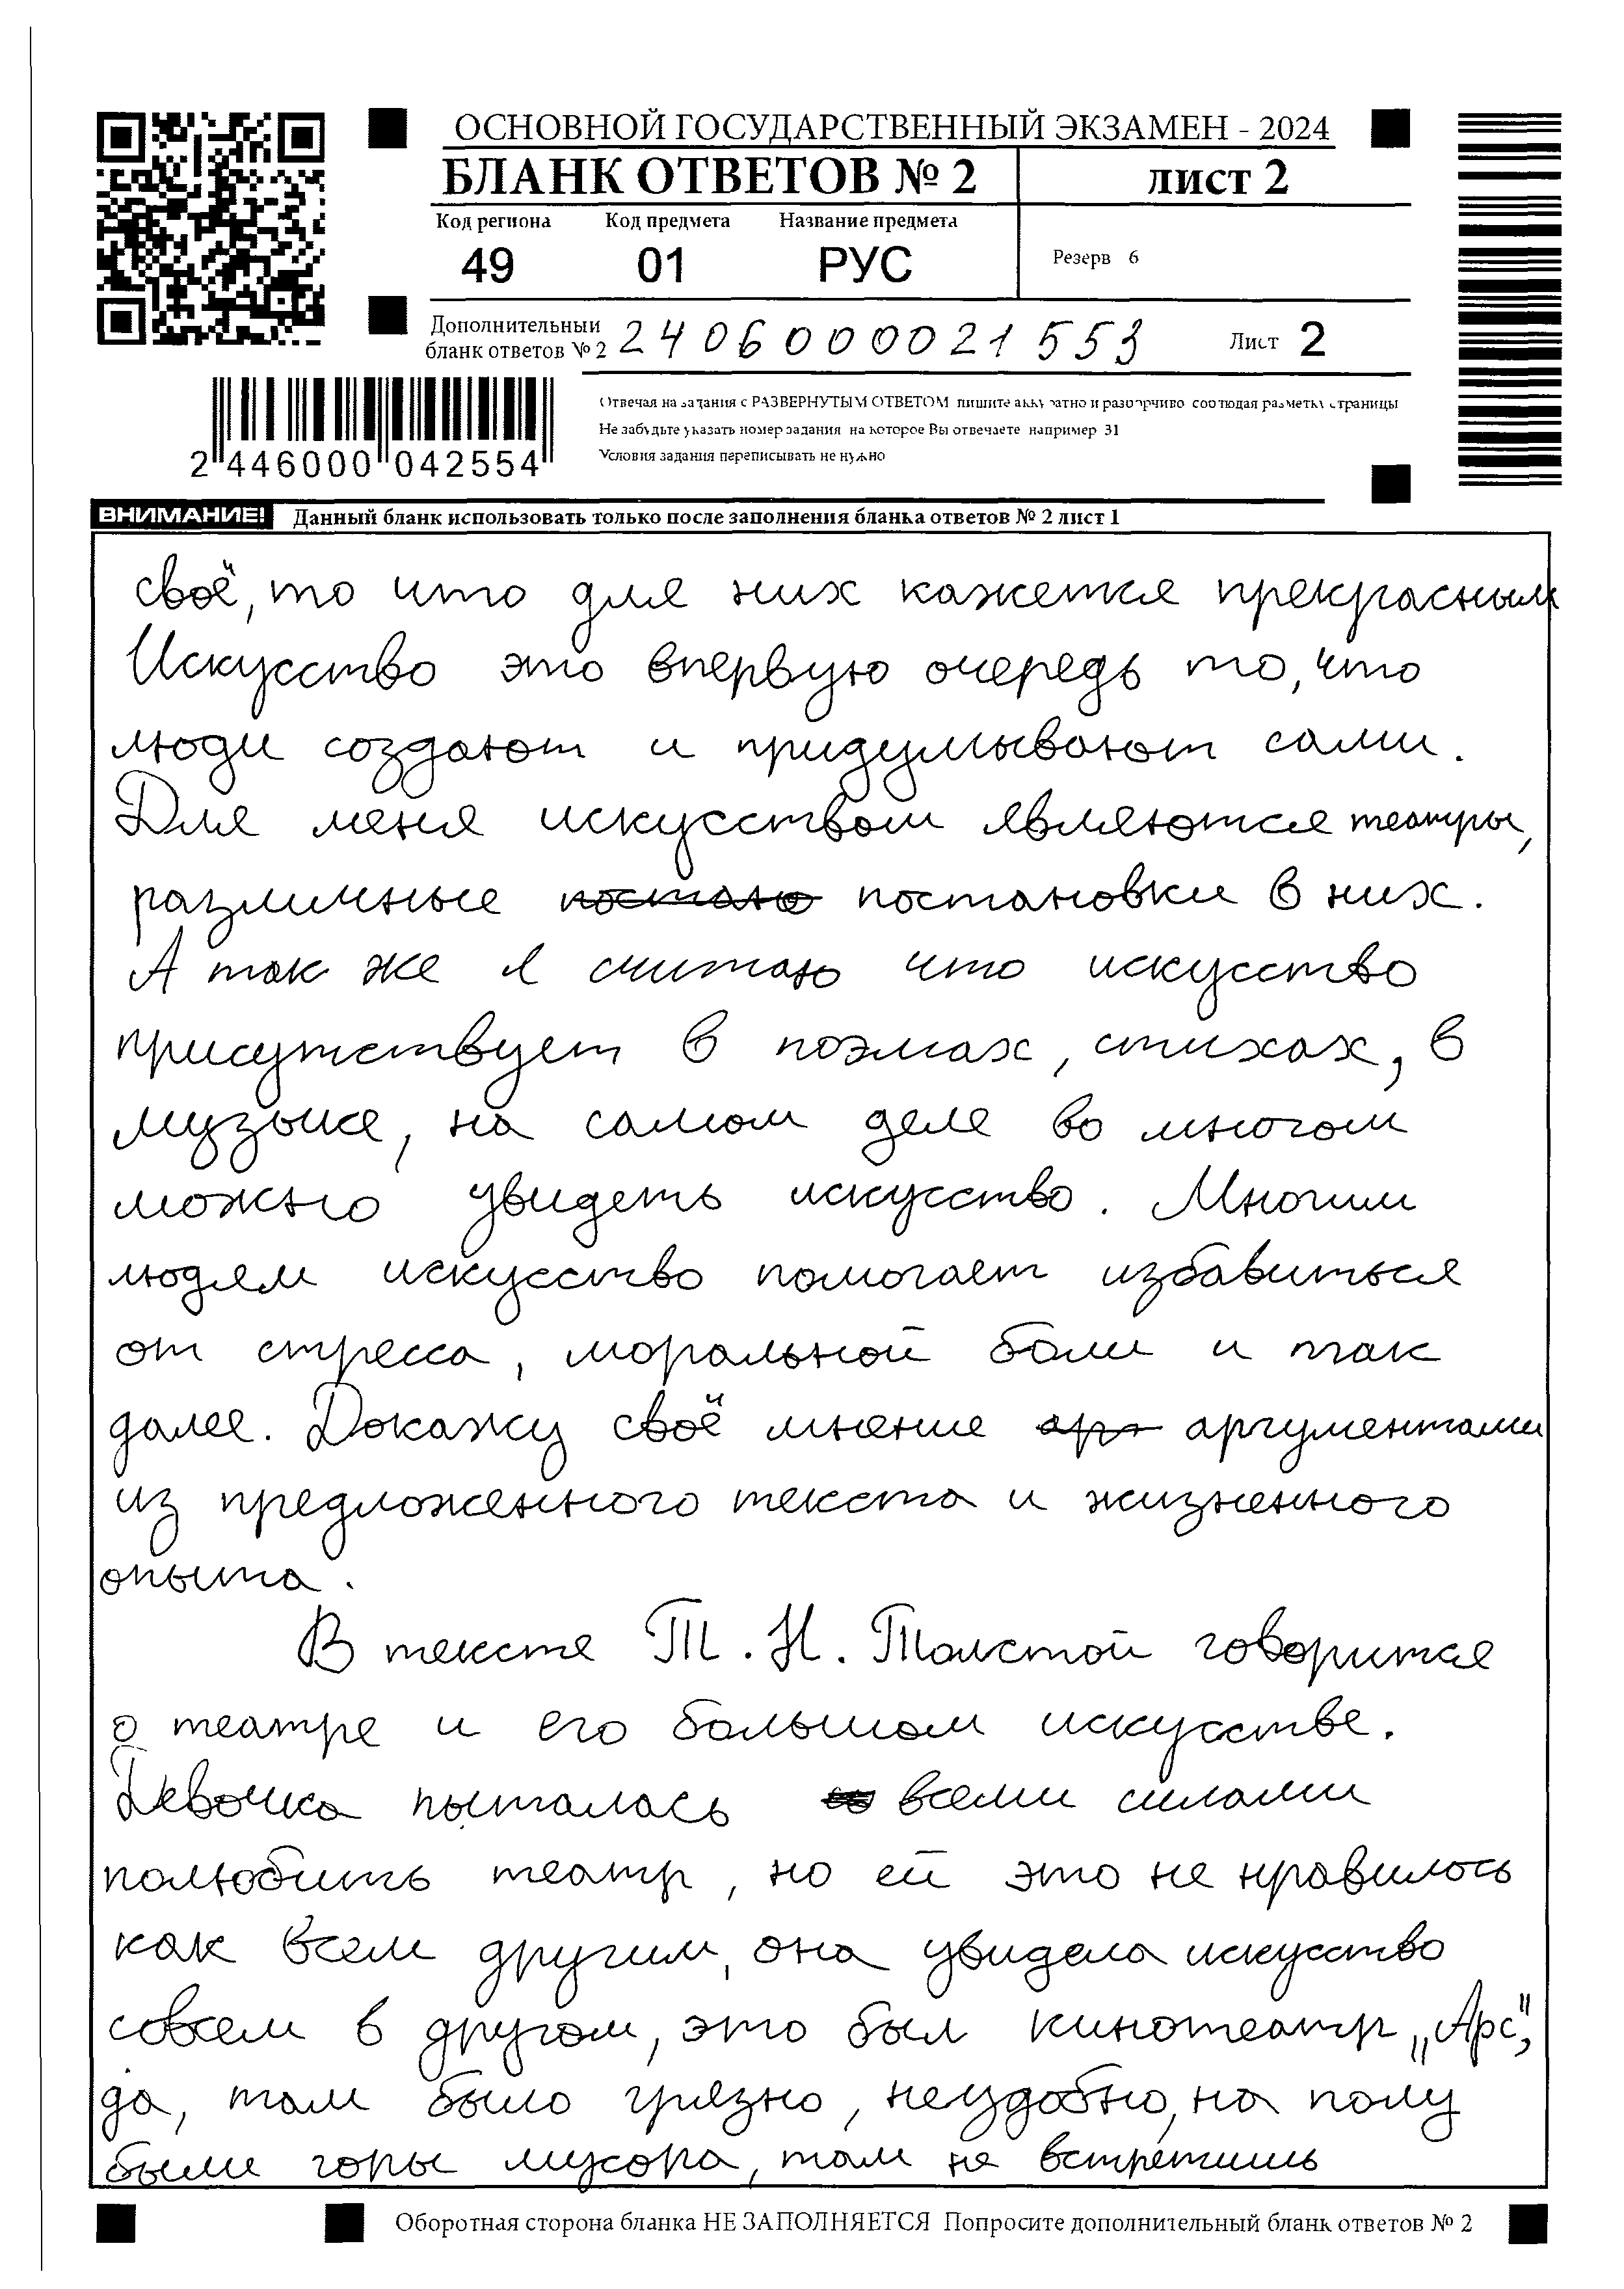 ОСНОВНОЙ ГОСУДАРСТВЕННЫЙ ЭКЗАМЕН - 2024
БЛАНК ОТВЕТОВ № 2
ЛИСТ 2
Код региона Код предмета Название предмета
49 01 РУС
Резерв 6
Дополнительный
бланк ответов № 2 2406000021553
Лист 2
Отвечая на задания с РАЗВЕРНУТЫМ ОТВЕТОМ пишите аккуратно и разборчиво соблюдая разметку страницы
Не забудьте указать номер задания на которое Вы отвечаете например 31
Условия задания переписывать не нужно
2 446000 042554
ВНИМАНИЕ! Данный бланк использовать только после заполнения бланка ответов № 2 лист 1
своё, то что для них кажется прекрасным
Искусство это впервую очередь то, что
люди создают и придумывают сами.
Для меня искусством являются театры,
различные постано постановки в них.
А так же я считаю что искусство
присутствует в поэмах, стихах, в
музыке, на самом деле во многом
можно увидеть искусство. Многим
людям искусство помогает избавиться
от стресса, моральной боли и так
далее. Докажу своё мнение арг аргументами
из предложенного текста и жизненного
опыта.
В тексте Т. Н. Толстой говорится
о театре и его большом искусстве.
Девочка пыталась всеми силами
полюбить театр, но ей это не нравилось
как всем другим, она увидела искусство
совсем в другом, это был кинотеатр „Арс",
да, там было грязно, неудобно, на полу
были горы мусора, там не встретишь
Оборотная сторона бланка НЕ ЗАПОЛНЯЕТСЯ Попросите дополнительный бланк ответов № 2